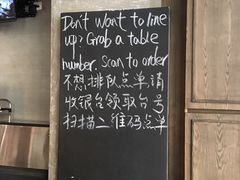 Don't want to line
up? Grab a table
number. Scan to order
不想排队点单请
收银台领取台号
扫描二维码点单